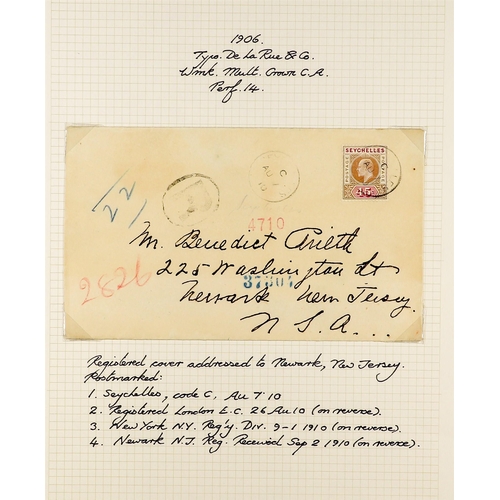 1906.
Typo. De La Rue & Co.
Wmk. Mult. Crown C.A.
Perf. 14.
SEYCHELLES
POSTAGE
POSTAGE
45c
22
4710
Mr. Benedict
225 Washington St
37807
2826
Newark New Jersey.
U.S.A...
Registered cover addressed to Newark, New Jersey.
Postmarked:
1. Seychelles, code C, Au 7 '10
2. Registered London E.C. 26 Au 10 (on reverse).
3. New York N.Y. Reg'y. Div. 9-1 1910 (on reverse).
4. Newark N.J. Reg. Received Sep 2 1910 (on reverse).